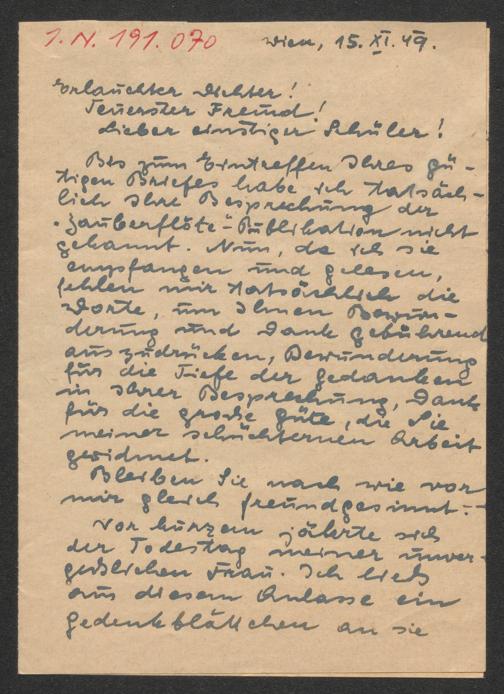 I. N. 191.070
Wien, 15. XI. 49.
Erlauchter Dichter!
Teuerster Freund!
Lieber einstiger Schüler!
Bis zum Eintreffen Ihres gü-
tigen Briefes habe ich tatsäch-
lich Ihre Besprechung der
"Zauberflöte"-Publikation nicht
gekannt. Nun, da ich sie
empfangen und gelesen,
fehlen mir tatsächlich die
Worte, um Ihnen Bewun-
derung und Dank gebührend
auszudrücken, Bewunderung
für die Tiefe der Gedanken
in Ihrer Besprechung, Dank
für die große Güte, die Sie
meiner schüchternen Arbeit
gewidmet.
Bleiben Sie nach wie vor
mir gleich freundgesinnt.-
Vor kurzem jährte sich
der Todestag meiner unver-
geßlichen Frau. Ich ließ
aus diesem Anlasse ein
Gedenkblättchen an sie